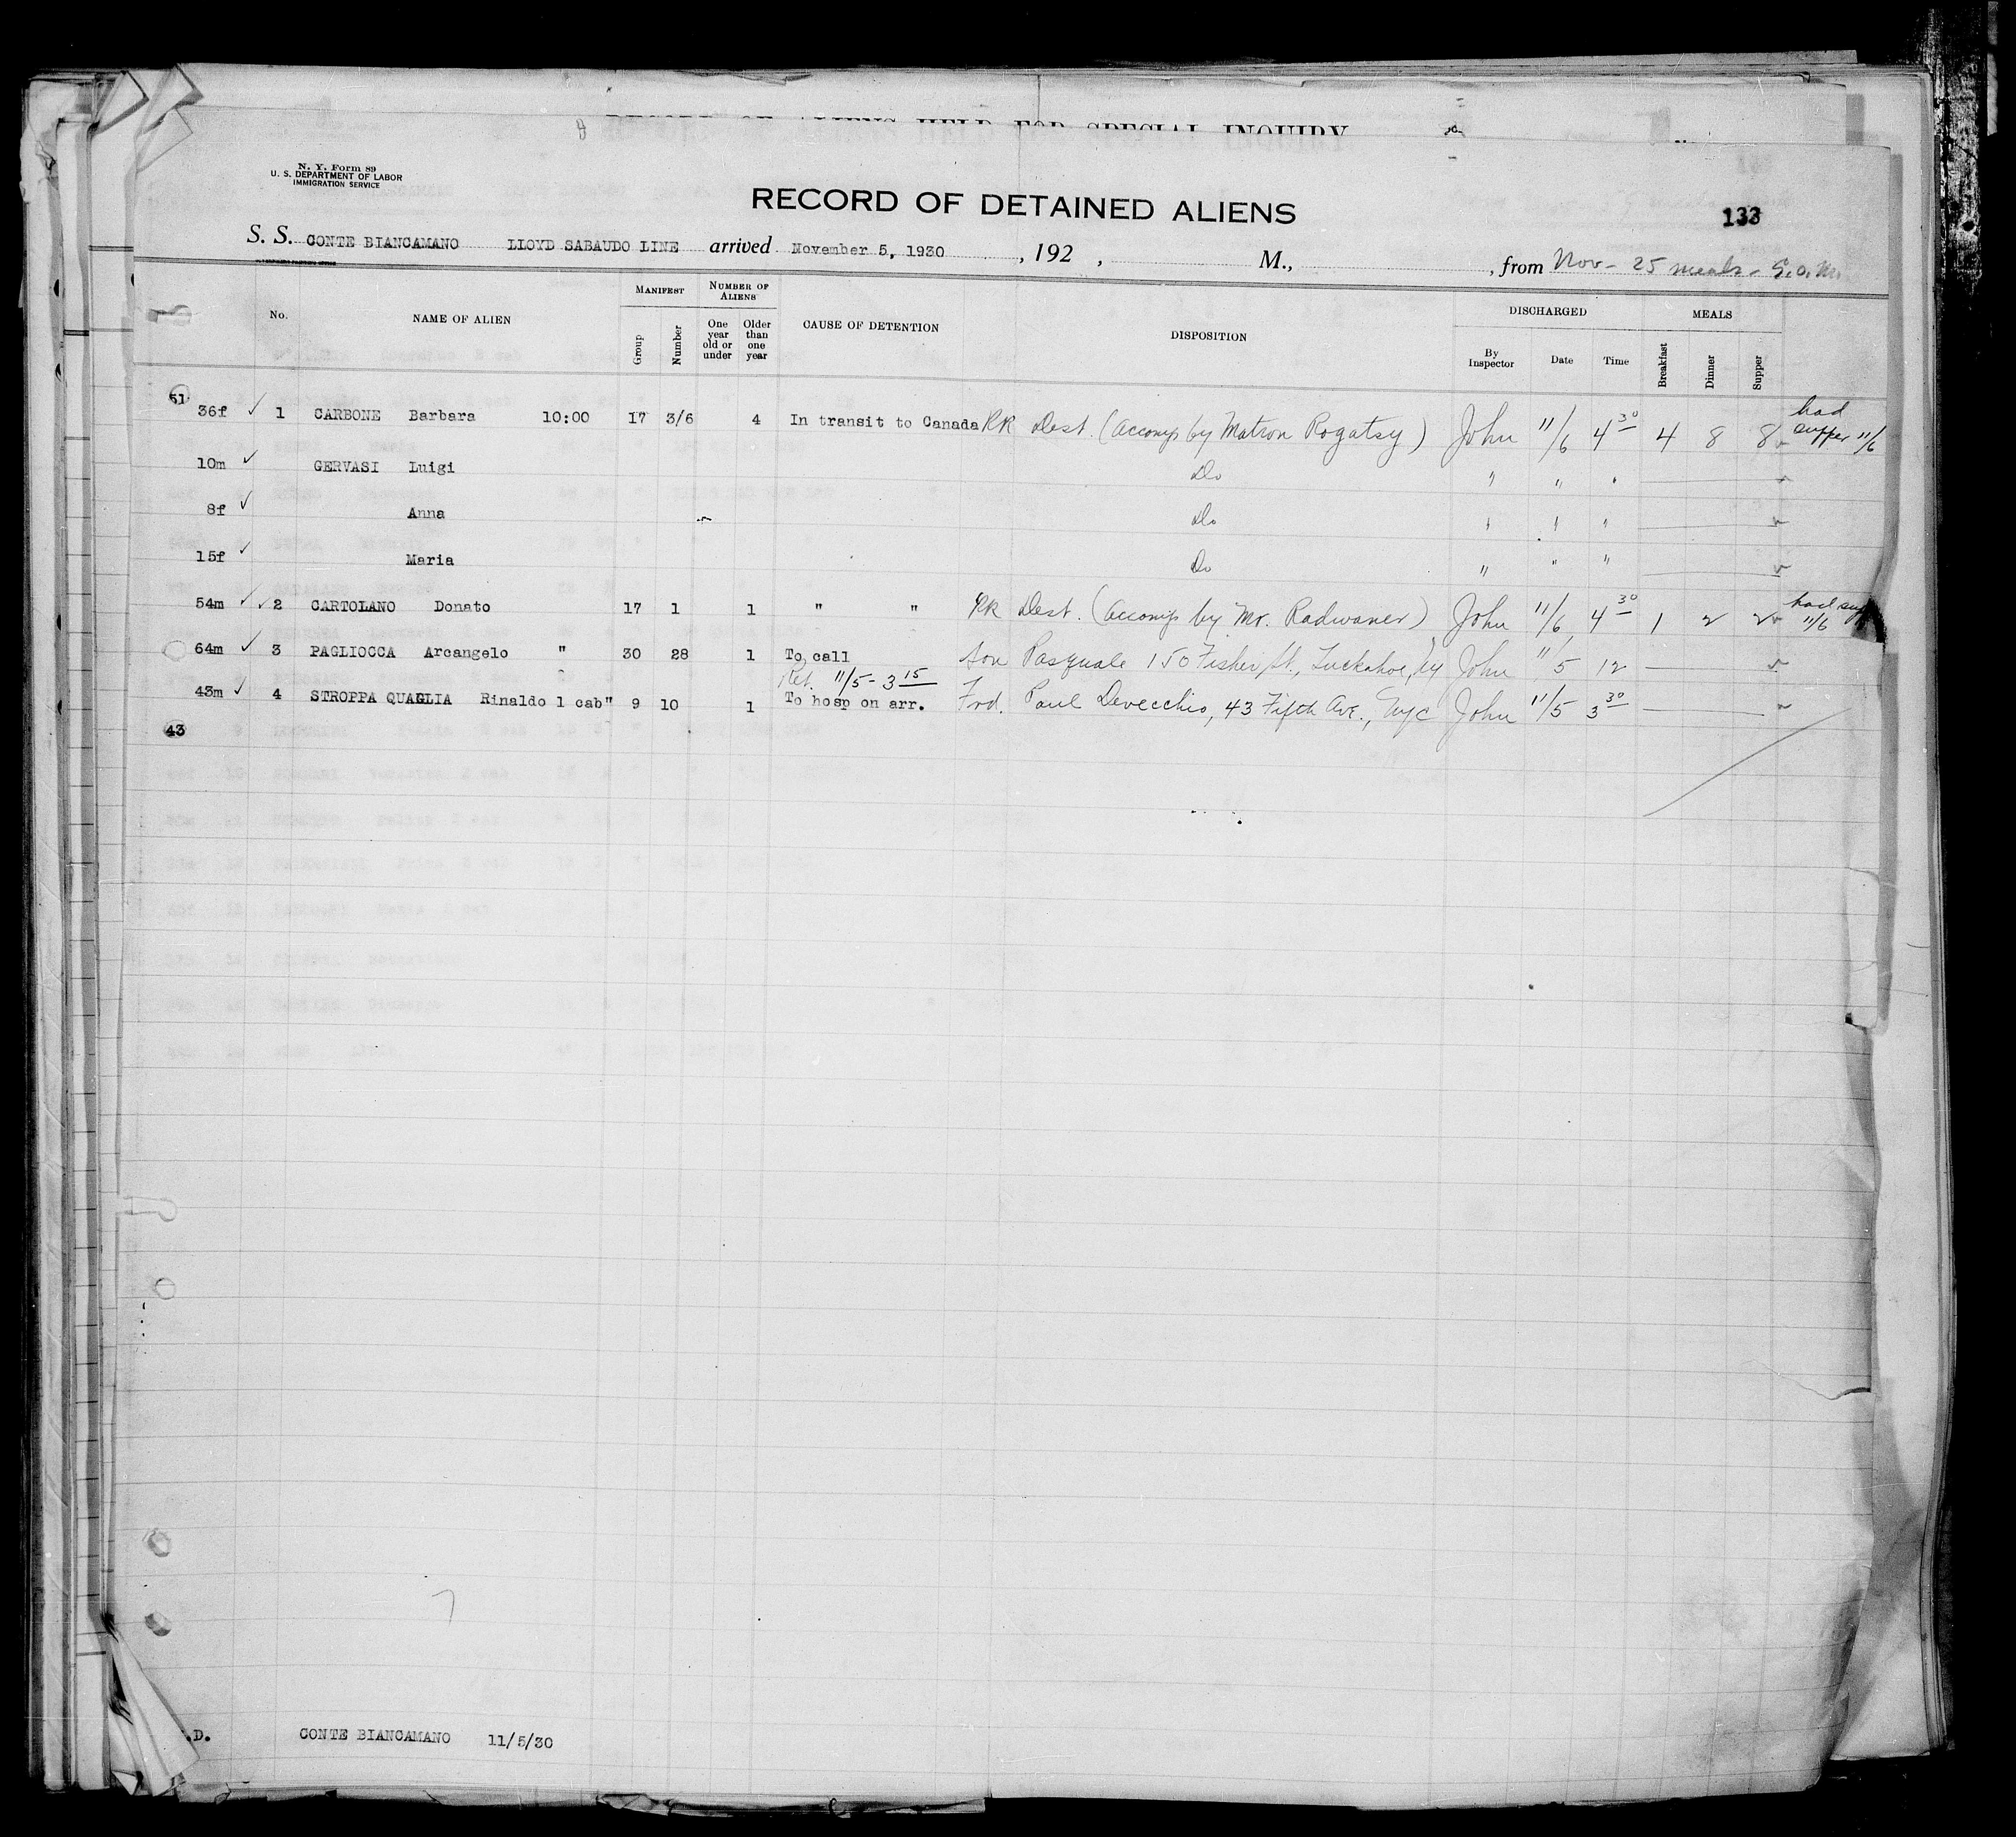 RECORD OF ALIENS HELD FOR SPECIAL INQUIRY
N. Y. Form 89
U. S. DEPARTMENT OF LABOR
IMMIGRATION SERVICE
RECORD OF DETAINED ALIENS
133
S. S. CONTE BIANCAMANO LLOYD SABAUDO LINE arrived November 5, 1930 , 192 , M., , from Nov - 25 meals - S.O.M.
No. NAME OF ALIEN MANIFEST Group Number NUMBER OF ALIENS One year old or under Older than one year CAUSE OF DETENTION DISPOSITION DISCHARGED By Inspector Date Time MEALS Breakfast Dinner Supper
51
36f ✓ 1 CARBONE Barbara 10:00 17 3/6 4 In transit to Canada RR Dest. (accomp by Matron Rogatsy) John 11/6 4 30 4 8 8 had supper 11/6
10m ✓ GERVASI Luigi Do " " "
8f ✓ Anna Do " " "
15f ✓ Maria Do " " "
54m ✓ ✓ 2 CARTOLANO Donato 17 1 1 " " RR Dest. (accomp by Mr. Radwaner) John 11/6 4 30 1 2 2 had sup 11/6
64m ✓ 3 PAGLIOCCA Arcangelo " 30 28 1 To call Son Pasquale 150 Fisher St., Tuckahoe, NY John 11/5 12
Ret. 11/5 - 3 15
43m ✓ 4 STROPPA QUAGLIA Rinaldo 1 cab " 9 10 1 To hosp on arr. Frd. Paul Devecchio, 43 Fifth Ave., NYC John 11/5 3 30
43
.D. CONTE BIANCAMANO 11/5/30